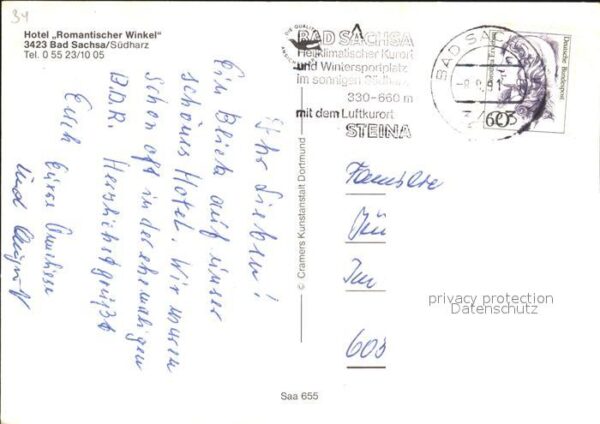 34
Hotel „Romantischer Winkel"
3423 Bad Sachsa/Südharz
Tel. 0 55 23/10 05
Ihr Lieben!
Ein Blick auf unser
schönes Hotel. Wir waren
schon oft in der ehemaligen
D.D.R. Herzlichst grüßt
Euch Eure
und August
© Cramers Kunstanstalt Dortmund
Saa 655
BAD SACHSA
Heilklimatischer Kurort
und Wintersportplatz
im sonnigen Südharz
330-660 m
mit dem Luftkurort
STEINA
BAD SA
Deutsche Bundespost
60
Familie
Jü
Im
603
privacy protection
Datenschutz